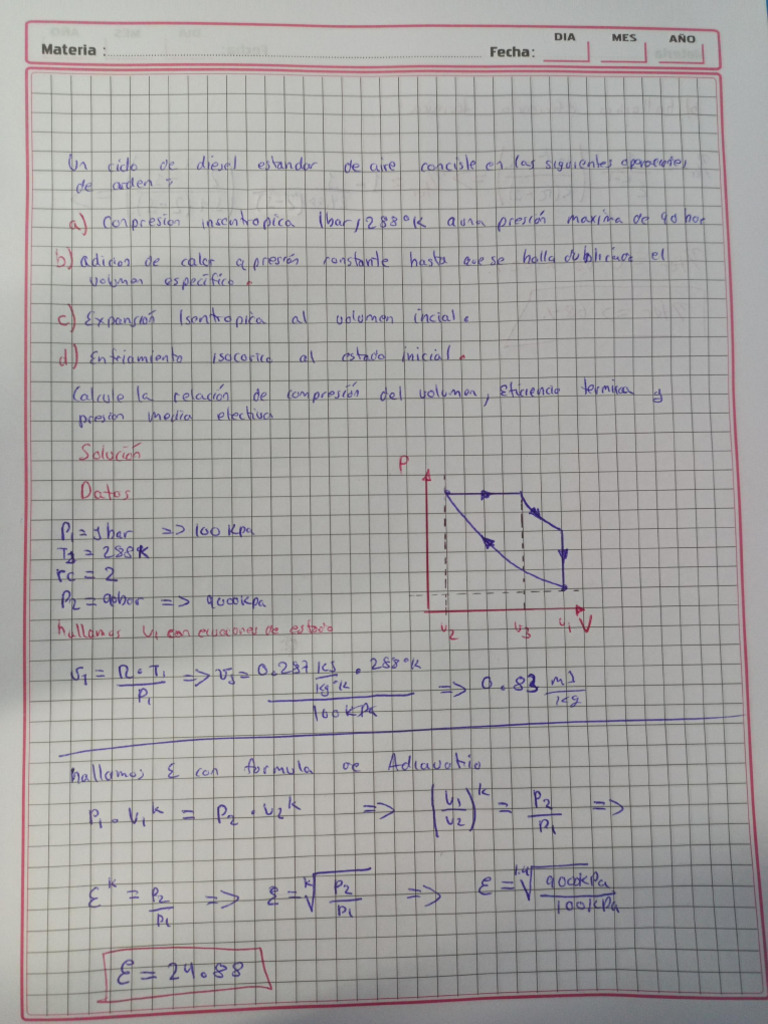 Materia :
Fecha:
DIA MES AÑO
Un ciclo de diesel estandar de aire conciste en las siguientes
de orden :
a) Conpresion insentropica 1bar, 288°K a una presión maxima de 90 bar
b) adicion de calor a presión constante hasta que se halla el
volumen especifico.
c) Expansión Isentropica al volumen incial.
d) Enfriamiento isocorico al estado inicial.
Calcule la relación de compresión del volumen, Eficiencia termica y
presion media electiva
Solución
Datos
P
P₁ = 1bar => 100 Kpa
T₁ = 288K
rc = 2
P₂ = 90bar => 9000Kpa
v₂ v₃ v₁ V
hallamos v₁ con ecuaciones de estado
v₁ = R · T₁ / P₁ => v₁ = 0.287 KJ/Kg°K · 288°K / 100KPa => 0.83 m3/Kg
hallamos ε con formula de Adiavatio
P₁ · V₁ᵏ = P₂ · V₂ᵏ => (V₁/V₂)ᵏ = P₂/P₁ =>
εᵏ = P₂/P₁ => ε = ᵏ√(P₂/P₁) => ε = ¹·⁴√(9000KPa/100KPa)
ε = 24.88